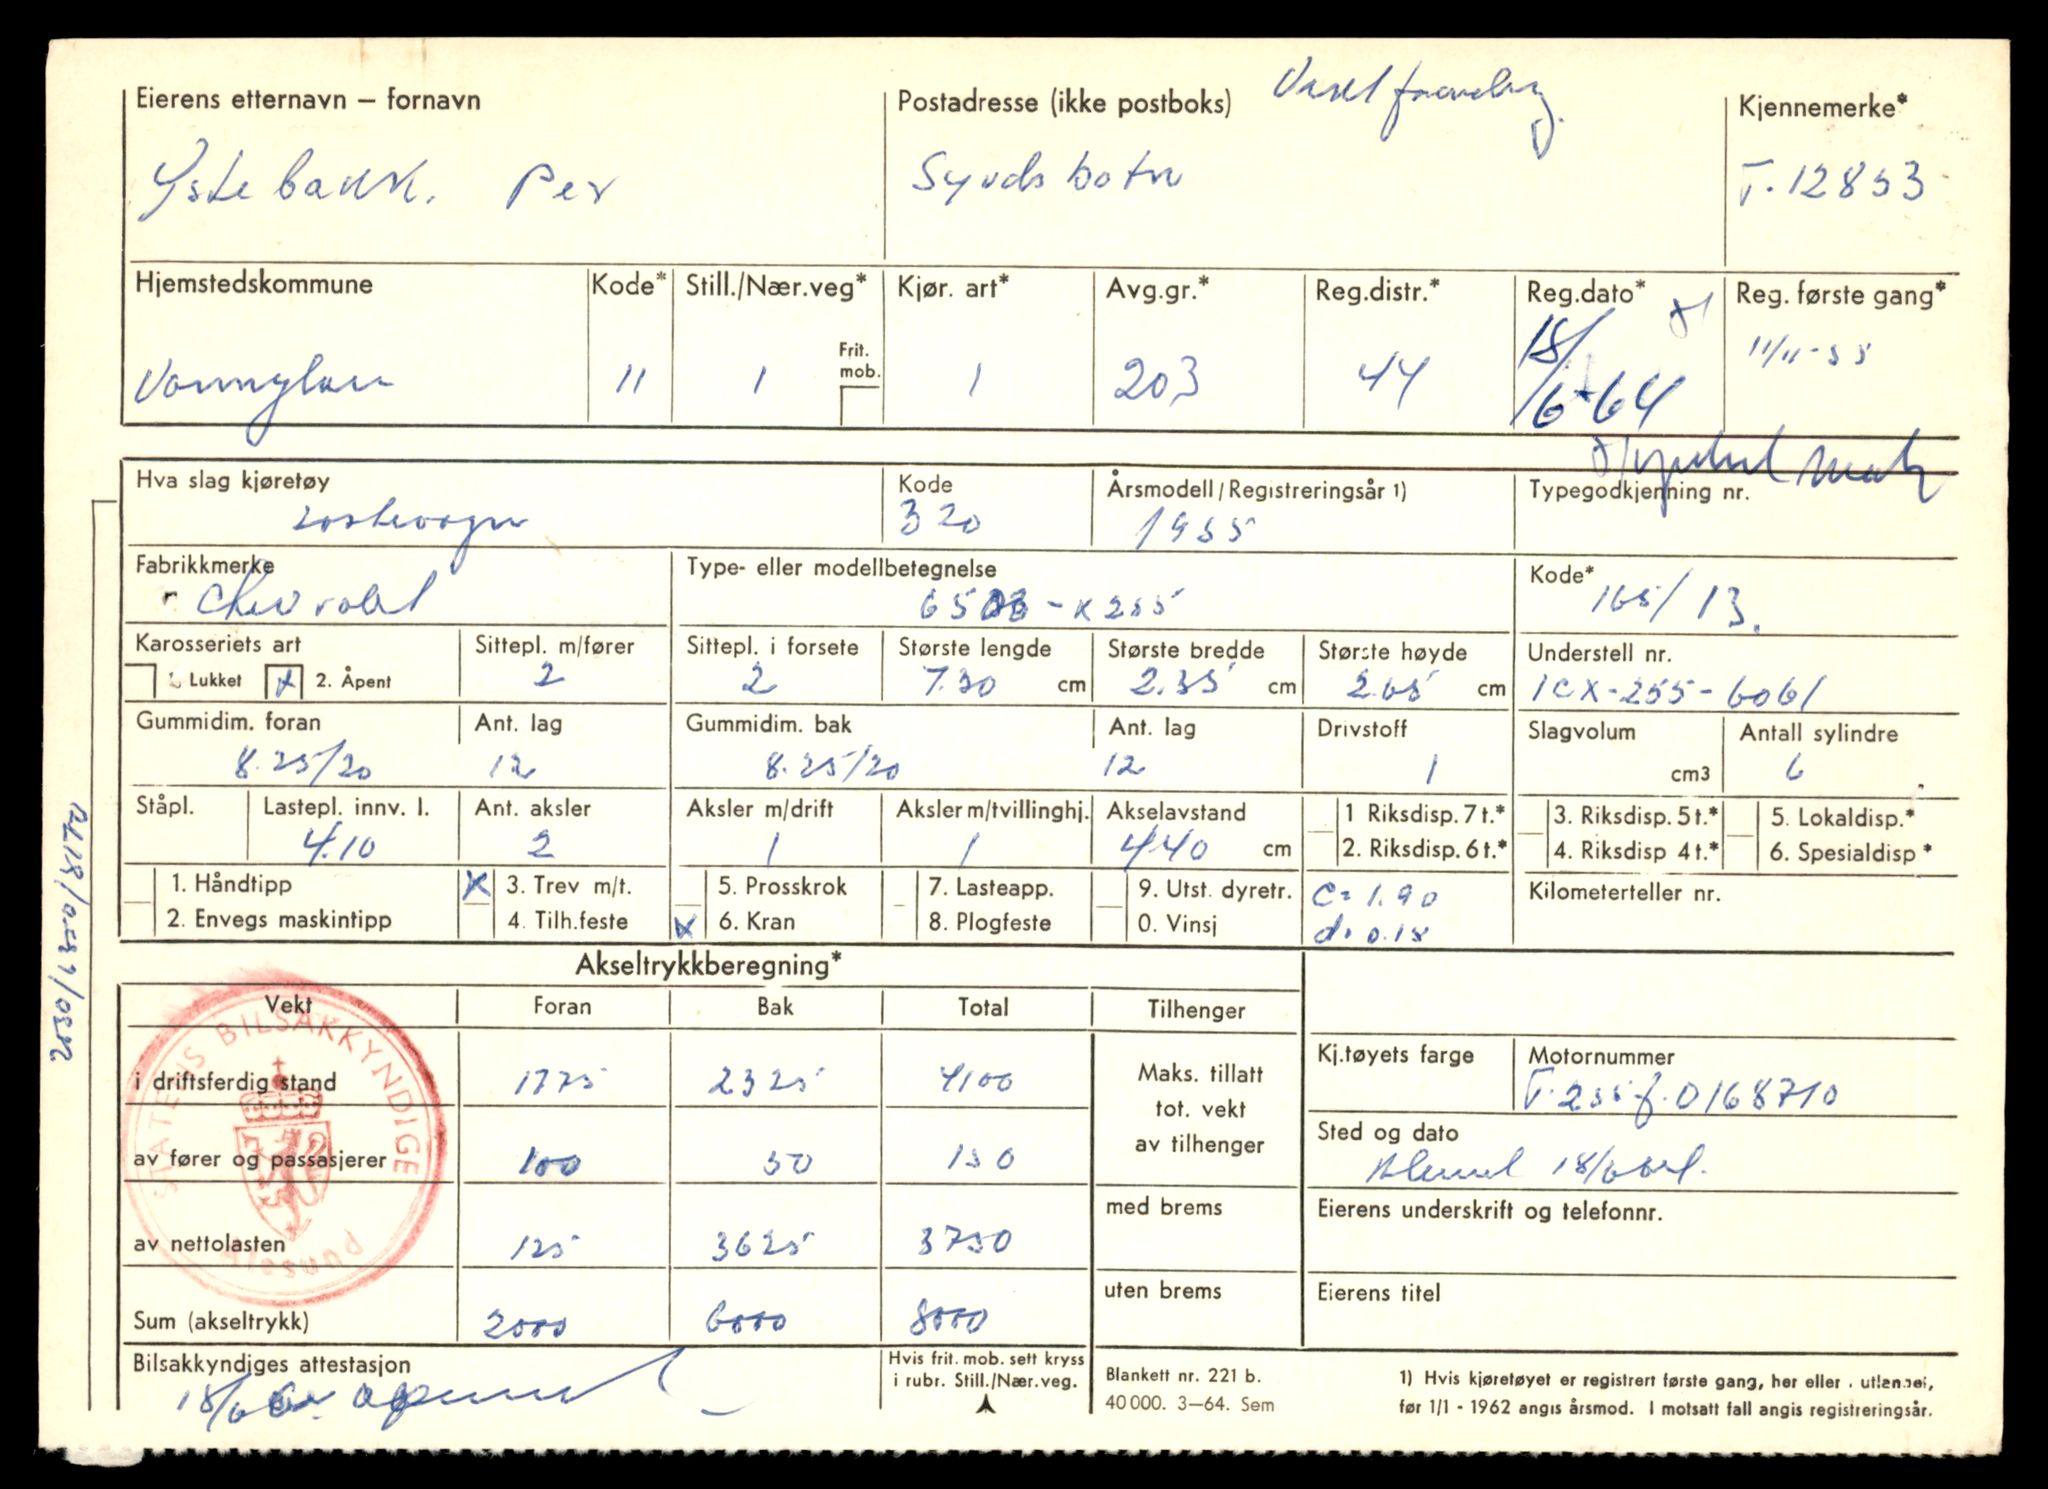 Eierens etternavn – fornavn
Postadresse (ikke postboks)
Kjennemerke*
Per
T. 12853
Hjemstedskommune
Kode*
Still./Nær.veg*
Kjør. art*
Avg.gr.*
Reg.distr.*
Reg.dato*
Reg. første gang*
Frit. mob.
11
1
1
203
44
18/6-64
11/11-55
Hva slag kjøretøy
Kode
Årsmodell/Registreringsår 1)
Typegodkjenning nr.
320
1955
Fabrikkmerke
Type- eller modellbetegnelse
Kode*
Chevrolet
165/13.
Karosseriets art
Sittepl. m/fører
Sittepl. i forsete
Største lengde
Største bredde
Største høyde
Understell nr.
Lukket
x
2. Åpent
2
2
7.30 cm
2.35 cm
2.65 cm
1CX-255-6061
Gummidim. foran
Ant. lag
Gummidim. bak
Ant. lag
Drivstoff
Slagvolum
Antall sylindre
8.25/20
12
8.25/20
12
1
cm3
6
Ståpl.
Lastepl. innv. l.
Ant. aksler
Aksler m/drift
Aksler m/tvillinghj.
Akselavstand
1 Riksdisp. 7 t.*
3. Riksdisp. 5 t.*
5. Lokaldisp.*
4.10
2
1
1
440 cm
2. Riksdisp. 6 t.*
4. Riksdisp 4 t.*
6. Spesialdisp *
1. Håndtipp
x 3. Trev m/t.
5. Prosskrok
7. Lasteapp.
9. Utst. dyretr.
C= 1.90
Kilometerteller nr.
2. Envegs maskintipp
4. Tilh.feste
x 6. Kran
8. Plogfeste
0. Vinsj
Akseltrykkberegning*
Vekt
Foran
Bak
Total
Tilhenger
STATENS BILSAKKYNDIGE
Ålesund
i driftsferdig stand
1775
2325
4100
Maks. tillatt
tot. vekt
av tilhenger
Kj.tøyets farge
Motornummer
av fører og passasjerer
100
50
150
Sted og dato
av nettolasten
125
3625
3750
med brems
Eierens underskrift og telefonnr.
Sum (akseltrykk)
2000
6000
8000
uten brems
Eierens titel
Bilsakkyndiges attestasjon
Hvis frit. mob. sett kryss
i rubr. Still./Nær.veg.
Blankett nr. 221 b.
40 000. 3–64. Sem
1) Hvis kjøretøyet er registrert første gang, her eller
før 1/1 - 1962 angis årsmod. I motsatt fall angis registreringsår.